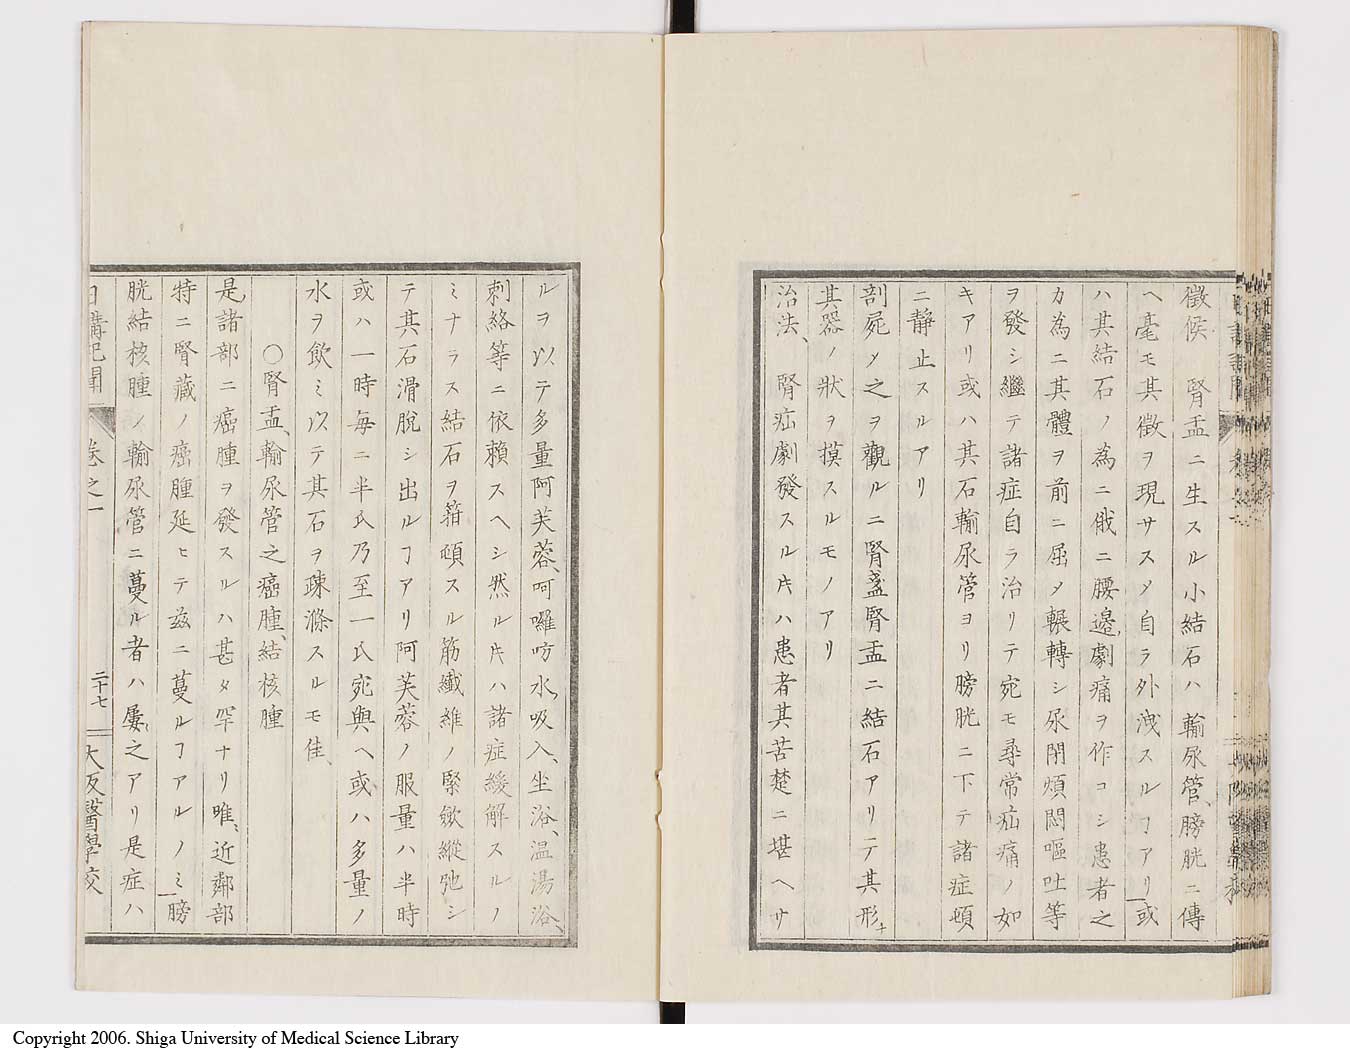 徴候　腎盂ニ生スル小結石ハ輸尿管、膀胱ニ傳
ヘ毫モ其徴ヲ現サスメ自ラ外洩スルヿアリ或
ハ其結石ノ為ニ俄ニ腰邉劇痛ヲ作コシ患者之
カ為ニ其體ヲ前ニ屈メ輾轉シ尿閉煩悶嘔吐等
ヲ發シ繼テ諸症自ラ治リテ宛モ尋常疝痛ノ如
キアリ或ハ其石輸尿管ヨリ膀胱ニ下テ諸症頓
ニ静止スルアリ
剖屍メ之ヲ觀ルニ腎盞腎盂ニ結石アリテ其形ヰ
其器ノ狀ヲ摸スルモノアリ
治法、　腎疝劇發スル片ハ患者其苦楚ニ堪ヘサ
ルヲ以テ多量阿芙蓉、呵囉吩水、吸入、坐浴、温湯浴、
刺絡等ニ依賴スヘシ然ル片ハ諸症緩解スルノ
ミナラス結石ヲ箝頓スル筋纎維ノ緊斂縱弛シ
テ其石滑脱シ出ルヿアリ阿芙蓉ノ服量ハ半時
或ハ一時毎ニ半氏乃至一氏宛與ヘ或ハ多量ノ
水ヲ飲ミ以テ其石ヲ疎滌スルモ佳、
〇腎盂、輸尿管之癌腫、結核腫
是諸部ニ癌腫ヲ發スルハ甚タ罕ナリ唯、近鄰部
特ニ腎藏ノ癌腫延ヒテ兹ニ蔓ルヿアルノミ膀
胱結核腫ノ輸尿管ニ蔓ル者ハ屢之アリ是症ハ
日講記聞　卷之一　二十七　大阪醫學校
Copyright 2006. Shiga University of Medical Science Library